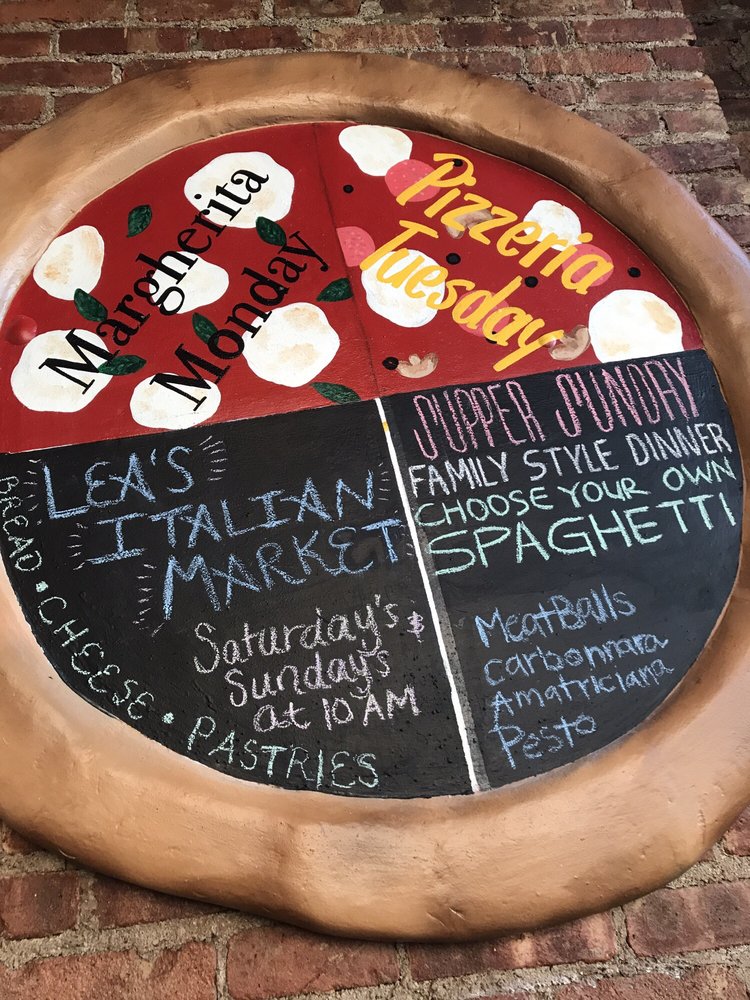 Margherita
Monday
Pizzeria
Tuesday
LEA'S
ITALIAN
MARKET
Saturday's &
Sundays
at 10 AM
BREAD • CHEESE • PASTRIES
SUPPER SUNDAY
FAMILY STYLE DINNER
CHOOSE YOUR OWN
SPAGHETTI
MeatBalls
carbonnara
Amatriciana
Pesto